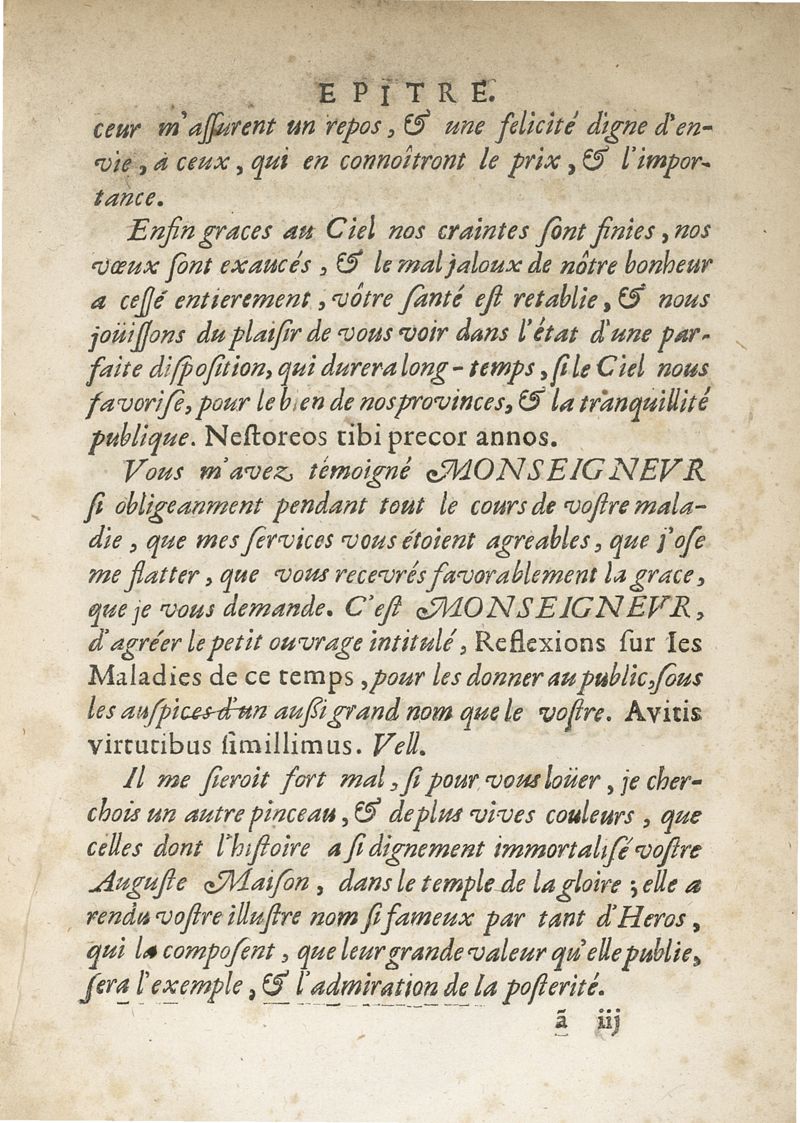 EPITRE.
ceur m'aſſurent un repos, & une felicité digne d'en-
vie, à ceux, qui en connoîtront le prix, & l'impor-
tance.
Enfin graces au Ciel nos craintes ſont finies, nos
vœux ſont exaucés, & le mal jaloux de nôtre bonheur
a ceſſé entierement, vôtre ſanté eſt retablie, & nous
joüiſſons du plaiſir de vous voir dans l'état d'une par-
faite diſpoſition, qui durera long-temps, ſi le Ciel nous
favoriſe, pour le bien de nos provinces, & la tranquillité
publique. Neſtoreos tibi precor annos.
Vous m'avez témoigné MONSEIGNEVR
ſi obligeanment pendant tout le cours de voſtre mala-
die, que mes ſervices vous étoient agreables, que j'oſe
me flatter, que vous recevrés favorablement la grace,
que je vous demande. C'eſt MONSEIGNEVR,
d'agréer le petit ouvrage intitulé, Reflexions ſur les
Maladies de ce temps, pour les donner au public, ſous
les auſpices d'un außi grand nom que le voſtre. Avitis
virtutibus ſimillimus. Vell.
Il me ſieroit fort mal, ſi pour vous loüer, je cher-
chois un autre pinceau, & de plus vives couleurs, que
celles dont l'hiſtoire a ſi dignement immortaliſé voſtre
Auguſte Maiſon, dans le temple de la gloire; elle a
rendu voſtre illuſtre nom ſi fameux par tant d'Heros,
qui la compoſent, que leur grande valeur qu'elle publie,
ſera l'exemple, & l'admiration de la poſterité.
ã iij